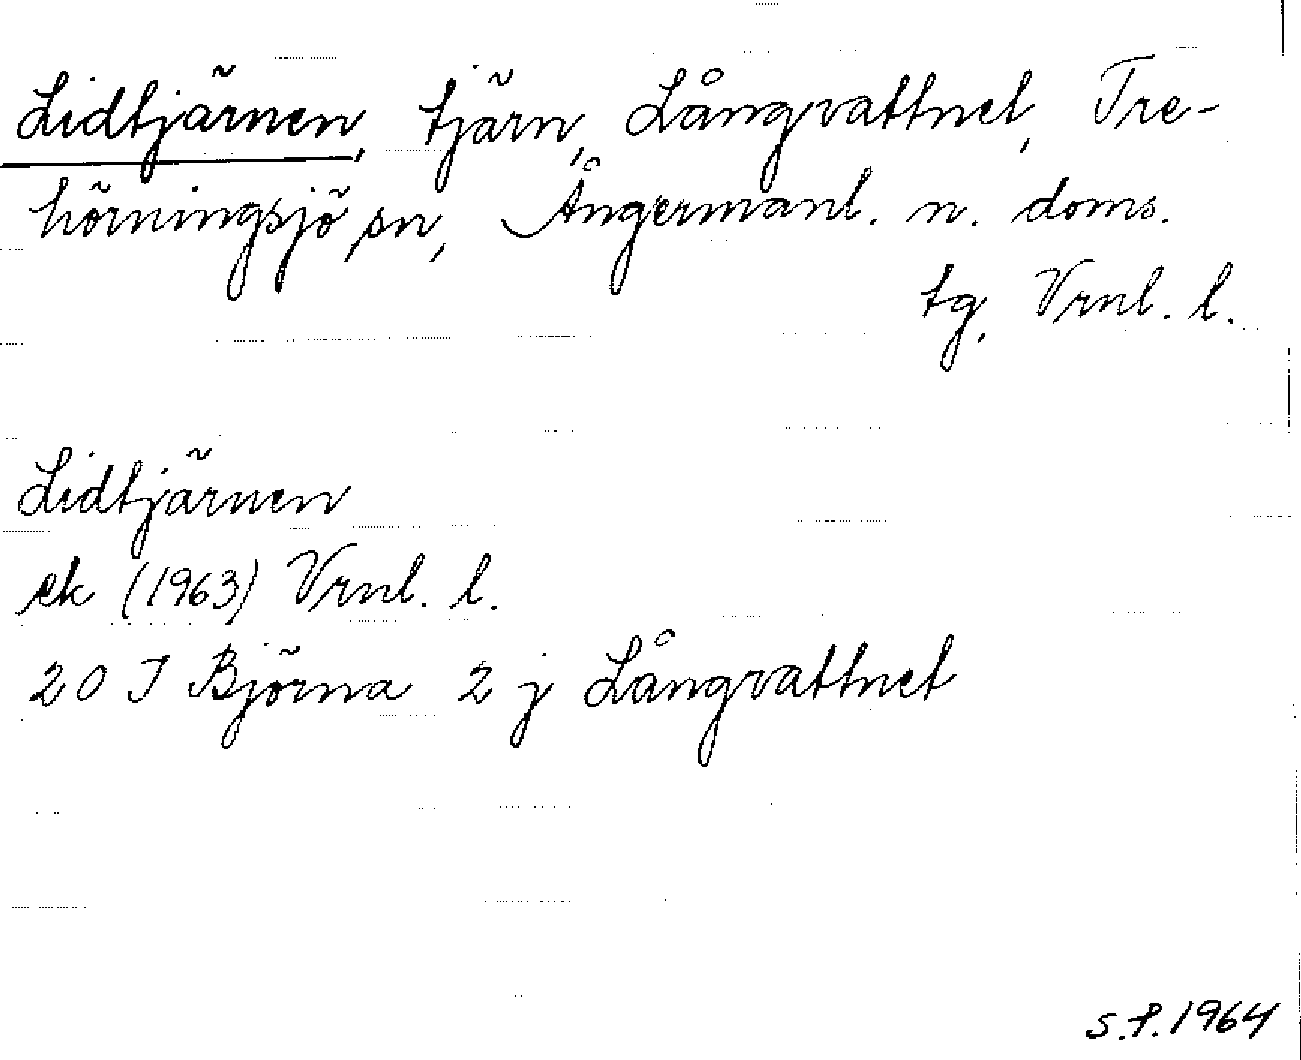 Lidtjärnen, tjärn, Långvattnet, Tre-
hörningsjö sn, Ångermanl. n. doms.
tg, Vrnl. l.
Lidtjärnen
ek (1963) Vrnl. l.
20 I Björna 2 j Långvattnet
S.P. 1964